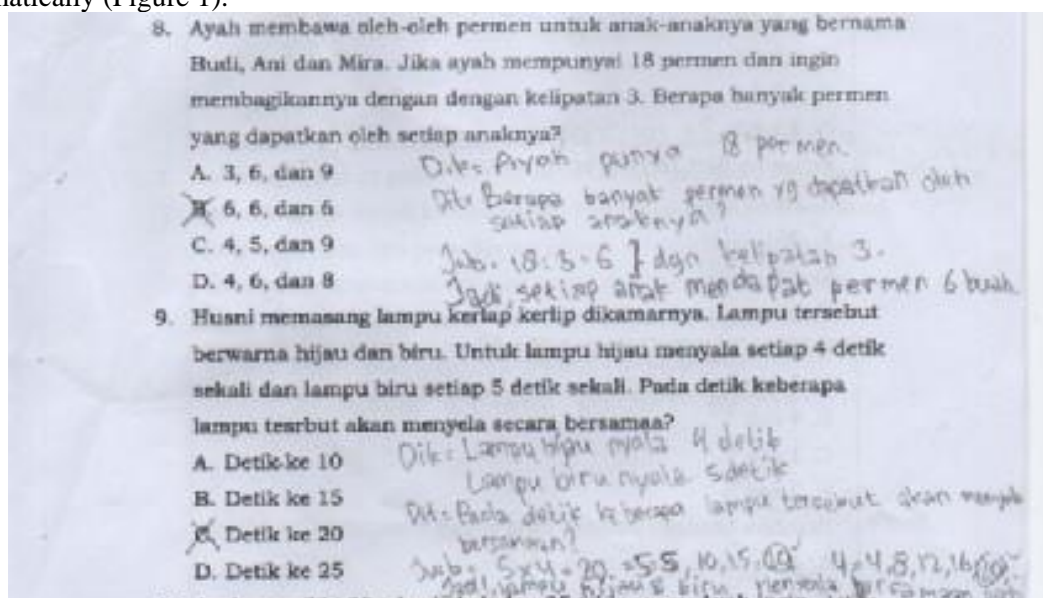 matically (Figure 1).
8. Ayah membawa oleh-oleh permen untuk anak-anaknya yang bernama
Budi, Ani dan Mira. Jika ayah mempunyai 18 permen dan ingin
membagikannya dengan dengan kelipatan 3. Berapa banyak permen
yang dapatkan oleh setiap anaknya?
A. 3, 6, dan 9
Dik= Ayah punya 18 permen.
B. 6, 6, dan 6
Dit= Berapa banyak permen yg dapatkan oleh
setiap anaknya?
C. 4, 5, dan 9
Jwb= 18:3=6 } dgn kelipatan 3.
D. 4, 6, dan 8
Jadi, setiap anak mendapat permen 6 buah.
9. Husni memasang lampu kerlap kerlip dikamarnya. Lampu tersebut
berwarna hijau dan biru. Untuk lampu hijau menyala setiap 4 detik
sekali dan lampu biru setiap 5 detik sekali. Pada detik keberapa
lampu tesrbut akan menyela secara bersamaa?
A. Detik ke 10
Dik= Lampu hijau nyala 4 detik
Lampu biru nyala 5 detik
B. Detik ke 15
Dit= Pada detik keberapa lampu tersebut akan menyala
bersamaan?
C. Detik ke 20
Jwb= 5x4=20 =5=5,10,15,20 4=4,8,12,16,20
D. Detik ke 25
Jadi, lampu hijau & biru menyala bersamaan